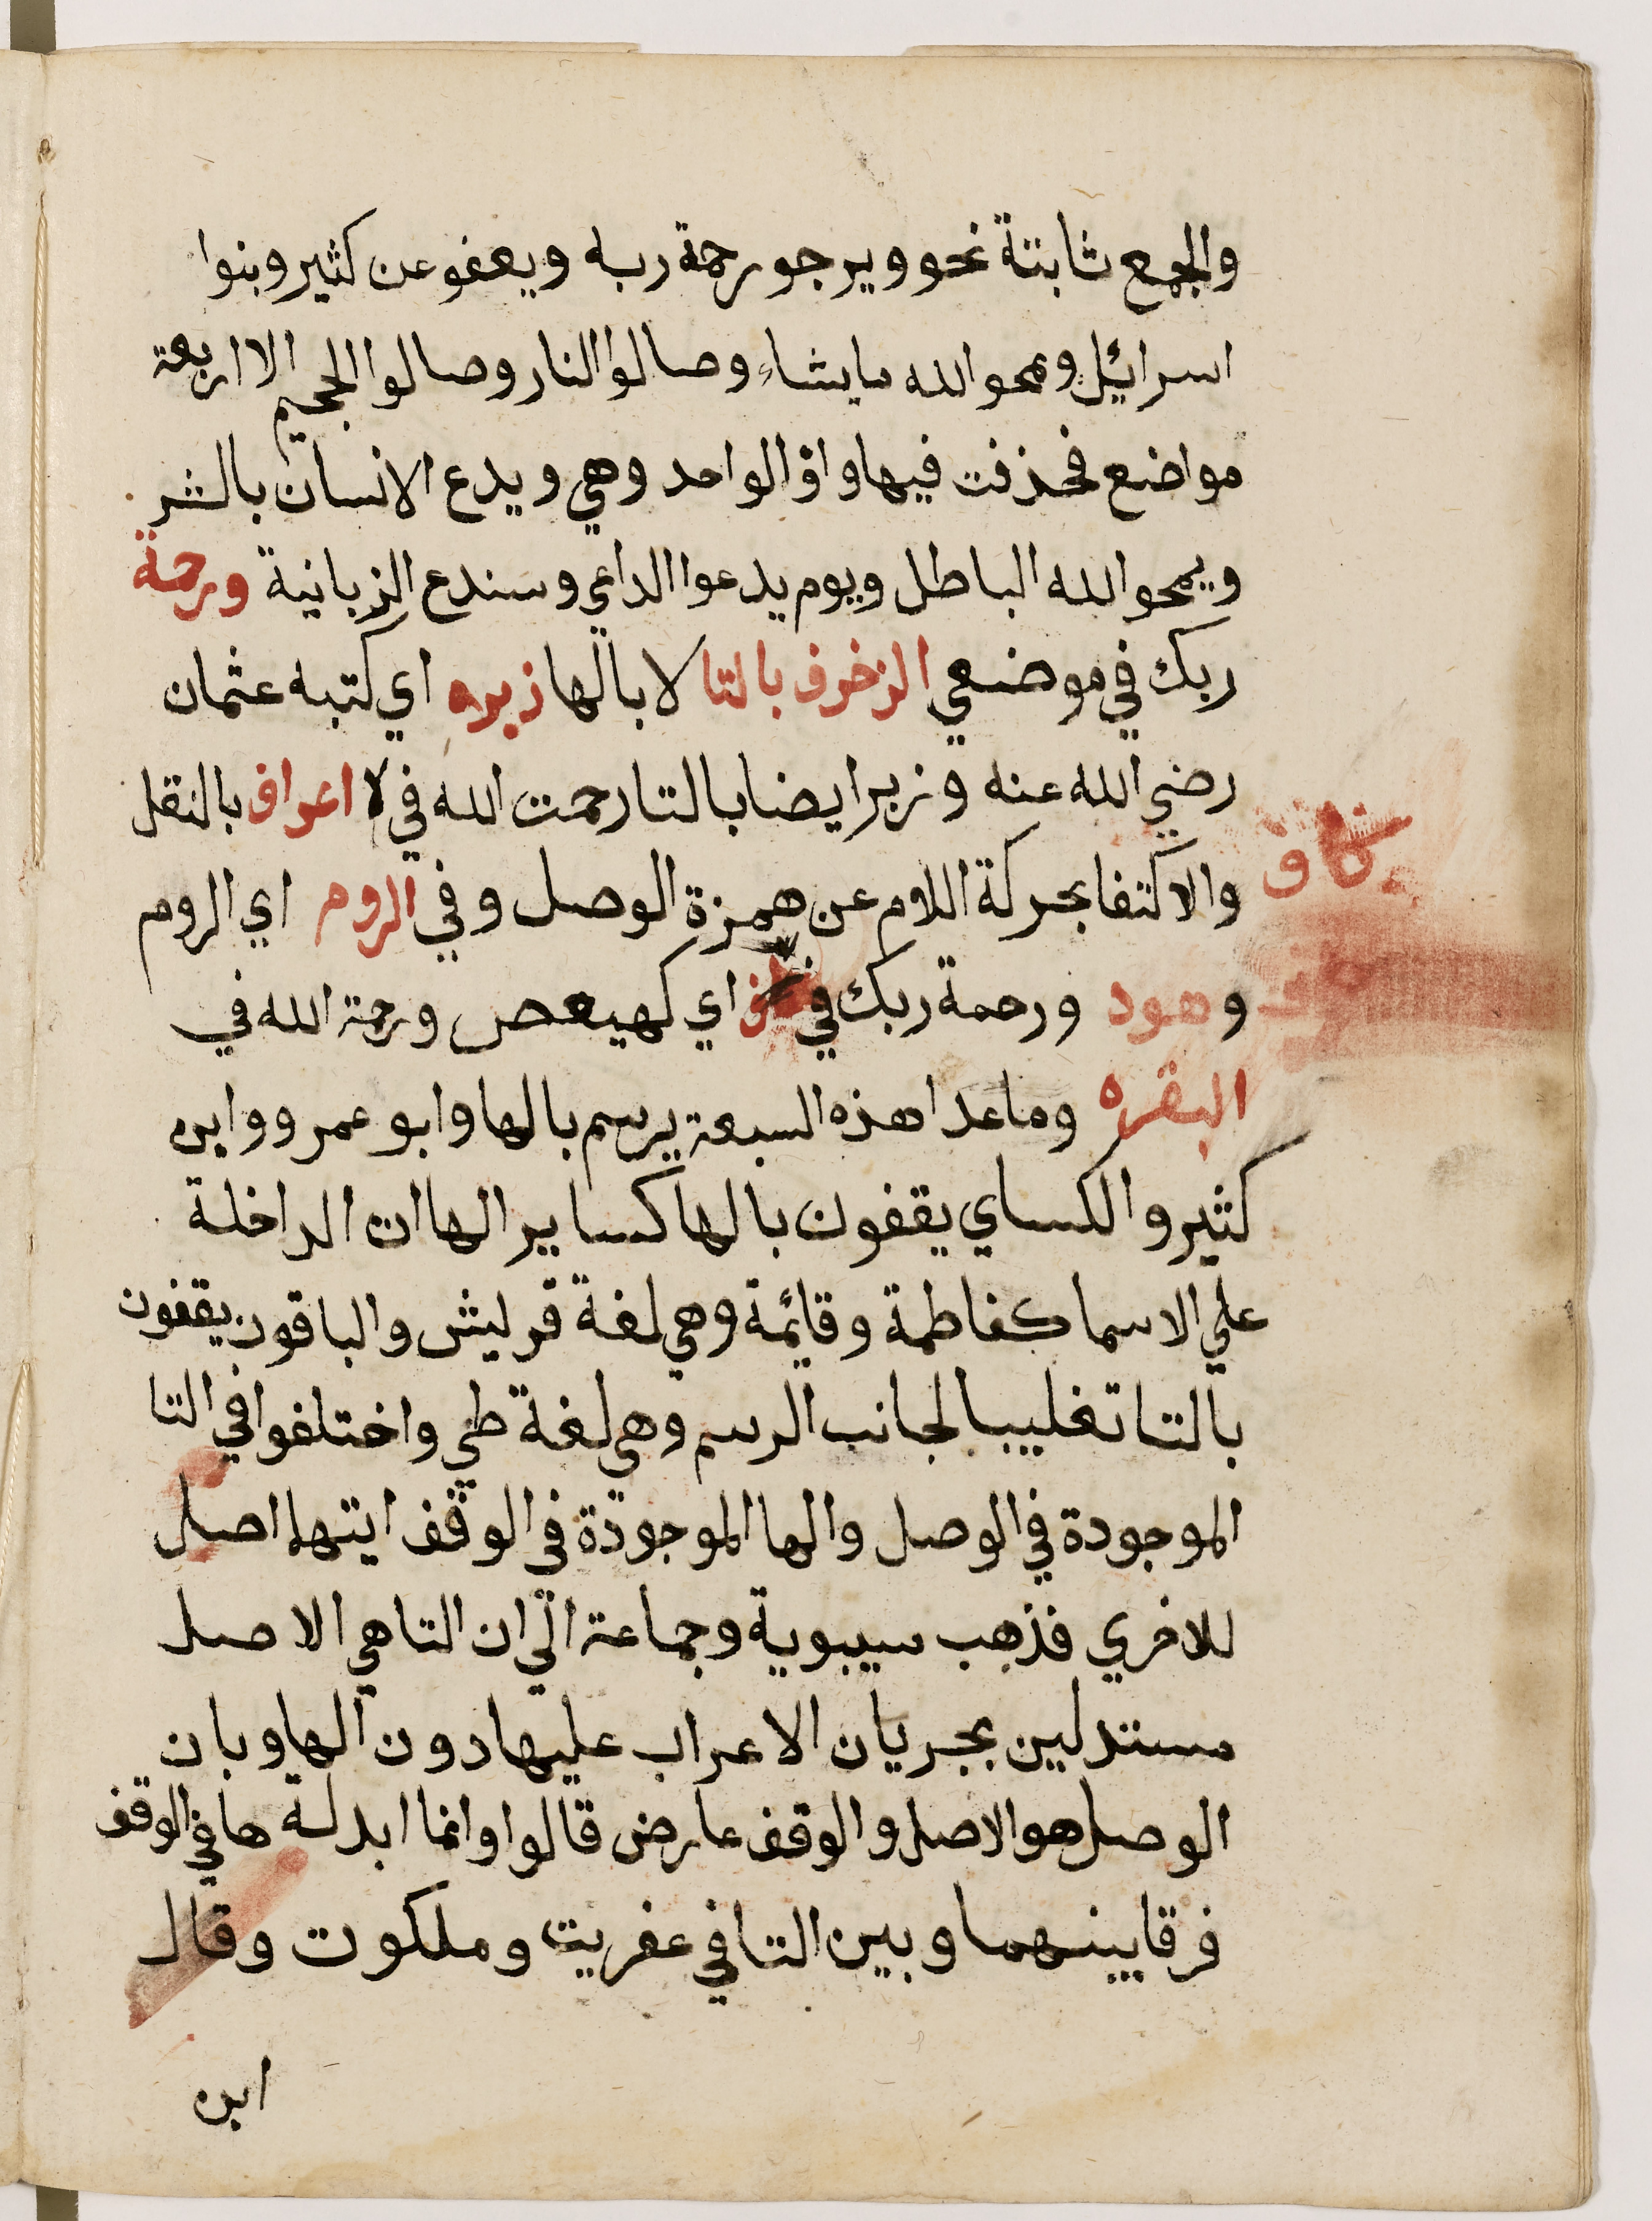 والجمع ثابتة نحو ويرجو رحمة ربه ويعفو عن كثير وبنوا
اسرائيل ويمحو الله مايشاء وصالوا النار وصالوا الجحيم الا اربعة
مواضع فحذفت فيها واو الواحد وهي ويدع الانسان بالشر
ويمحو الله الباطل ويوم يدعوا الداعي وسندع الزبانية ورحمة
ربك في موضعي الزخرف بالتا لا بالها زبره اي كتبه عثمان
رضي الله عنه وزبر ايضا بالتا رحمت الله في لا اعراف بالنقل
والاكتفا بحركة اللام عن همزة الوصل وفي الروم اي الروم
وهود ورحمة ربك في اي كهيعص ورحمة الله في
كاف
البقره وماعدا هذه السبعة يرسم بالها وابو عمرو وابن
كثير والكساي يقفون بالها كساير الهاات الداخلة
علي الاسما كفاطمة وقائمة وهي لغة قريش والباقون يقفون
بالتا تغليبا لجانب الرسم وهي لغة طي واختلفوا في التا
الموجودة في الوصل والها الموجودة في الوقف ايتهما اصل
للاخري فذهب سيبوية وجماعة الي ان التا هي الاصل
مستدلين بجريان الاعراب عليها دون الها وبان
الوصل هو الاصل والوقف عارض قالوا وانما ابدلة ها في الوقف
فرقا بينهما وبين التا في عفريت وملكوت وقال
ابن